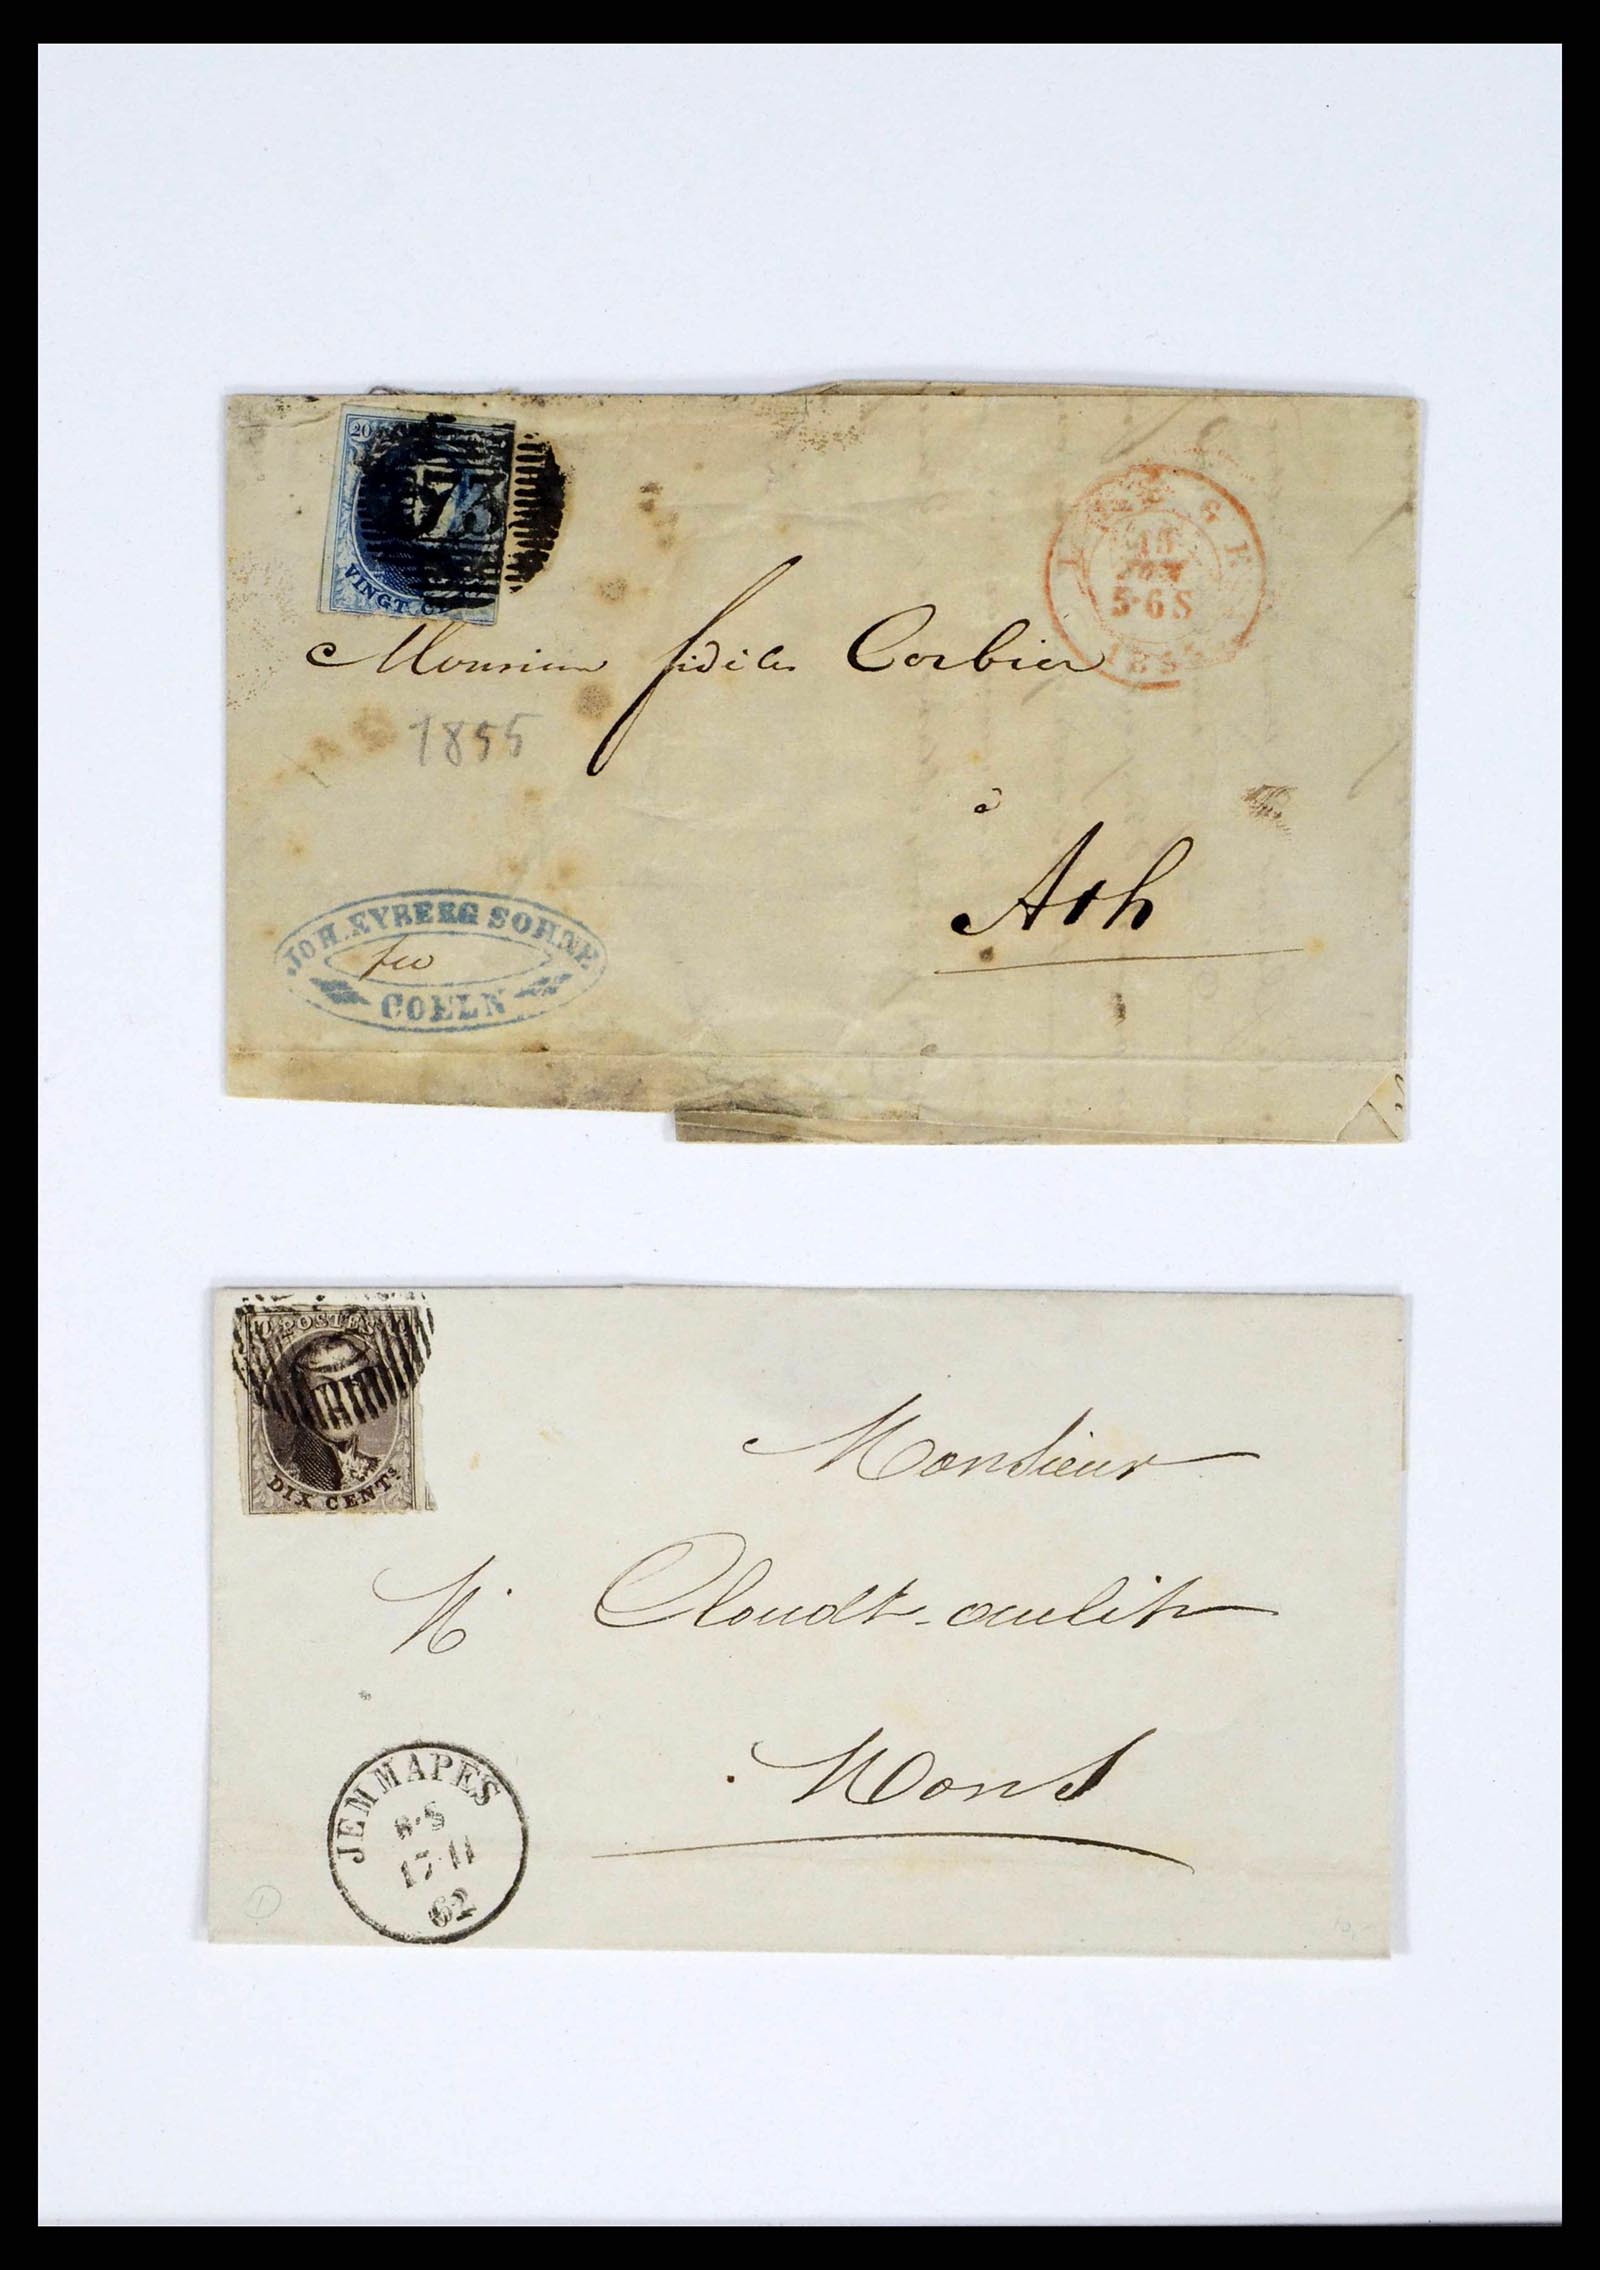 20
73
VINGT C
18
5-6 S
1855
Monsieur fidèles Corbier
1855
à
Ath
JOH. EYBERG SOEHNE
fco
COELN
POSTES
DIX CENTS
Monsieur
Mons
JEMMAPES
8-S
17 11
62
1
10,-